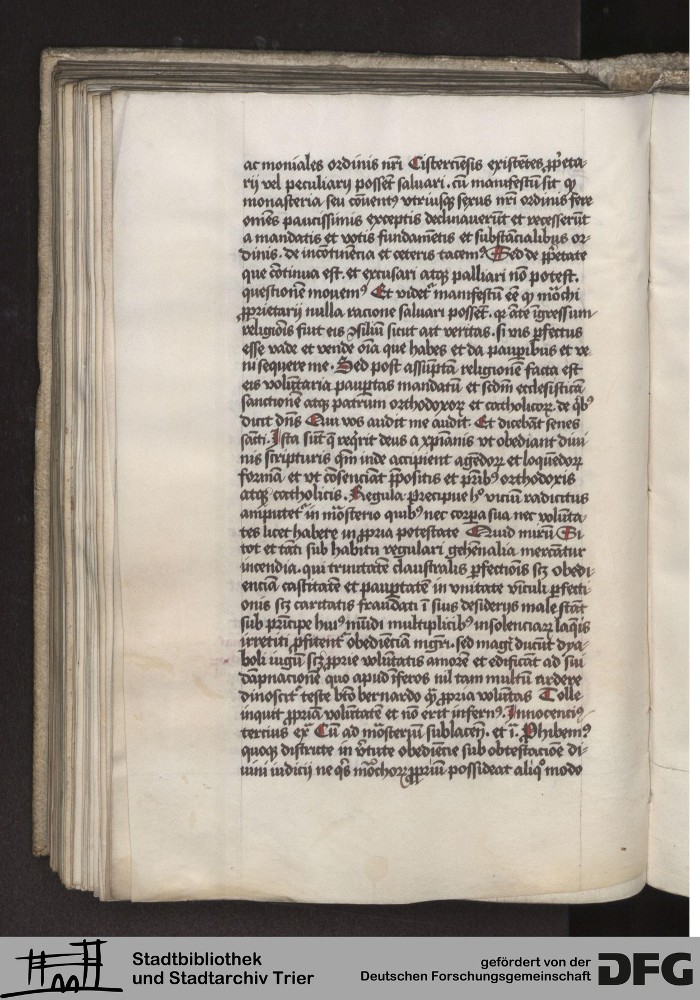 ac moniales ordinis nr̄i Cistercieñsis existētes ꝓp̄eta-
rij vel peculiarij possēt saluari . cū manifestū sit qꝫ
monasteria seu cōuentꝰ vtriusqꝫ sexus nr̄i ordinis fere
omēs paucissimis exceptis declinauerūt et recesserūt
a mandatis et votis fundamētis et substancialibus or-
dinis . de incotinētia et ceteris tacemꝰ Sed de ꝓp̄etate
que cōtinua est . et excusari atqꝫ palliari nō potest .
questionē mouemꝰ Et videt᷑ manifestū eē qꝫ mōchi
ꝓprietarij nulla racione saluari possēt . qr̄ ante īgressum
religiōis fiut eis ꝯsiliū sicut ait veritas . si vis ꝑfectus
esse vade et vende oīa que habes et da pauꝑibus et ve-
ni sequere me . Sed post assūptā religionē facta est
eis volūtaria pauꝑtas mandatū et scd̄m ecclesisticā
sanctionē atqꝫ patrum orthodoxoꝝ et catholicoꝝ . de q̄bꝰ
dicit dn̄s Qui vos audit me audit . Et dicebāt senes
sācti . Ista sūt q̄ reqͥrit deus a xp̄ianis vt obediant diui-
nis scripturis qm̄ inde accipient agēdoꝝ et loquēdoꝝ
formā et vt cōsenciāt p̄positis et p̄ribꝰ orthodoxis
atqꝫ catholicis . Regula precipue hͦ viciū radicitus
amputet᷑ in mōsterio quibꝰ nec corꝑa sua nec volūta-
tes licet habere in ꝓpria potestate Quid mirū Si
tot et tāti sub habitu regulari gehēnalia mercātur
incendia . qui trinitatē claustralis ꝑfectiōis scꝫ obedi-
enciā castitatē et pauꝑtatē in vnitate vīculi ꝑfecti-
onis scꝫ caritatis fraudati ī sius desiderijs male stāt
sub prīcipe huiꝰ mūdi multiplicibꝰ insolenciaꝝ laq̄is
irretiti ꝓfitent᷑ obediēciā mgr̄i . sed magꝭ ducūt dya-
boli iugū scꝫ ꝓprie volūtatis amorē et edificāt ad sui
dāpnacionē quo apud īferos nil tam multū ardere
dinoscit᷑ teste bt̄o bernardo q̄ꝫ ꝓpria volūtas Tolle
inquit ꝓpriā volūtatē et nō erit infernꝰ . Innocenciꝰ
tercius ex̄ Cū ad mōsteriū sublacēn̄ . et ī . Ꝓhibemꝰ
quoqꝫ districte in v̄tute obediētie sub obtestacione di-
uini iudicij ne qͥs mōchoꝝ ꝓpriū possideat aliqͦ modo
Stadtbibliothek
und Stadtarchiv Trier
gefördert von der
Deutschen Forschungsgemeinschaft
DFG